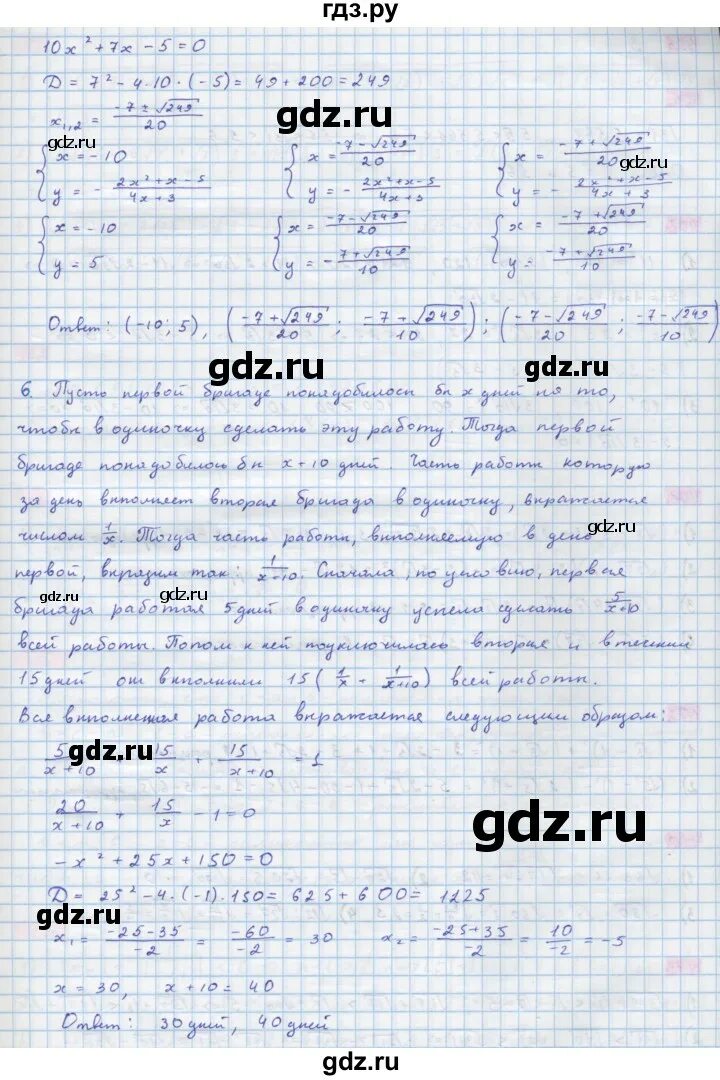 гдз.ру
10x² + 7x - 5 = 0
D = 7² - 4·10·(-5) = 49 + 200 = 249
x₁,₂ = (-7 ± √249)/20
gdz.ru
gdz.ru
gdz.ru
{ x = -10 { x = (-7 - √249)/20 { x = (-7 + √249)/20
y = - (2x² + x - 5)/(4x + 3) y = - (2x² + x - 5)/(4x + 3) y = - (2x² + x - 5)/(4x + 3)
gdz.ru
gdz.ru
{ x = -10 { x = (-7 - √249)/20 { x = (-7 + √249)/20
y = 5 y = - (7 + √249)/10 y = (-7 + √249)/10
Ответ: (-10; 5), ((-7 + √249)/20 ; (-7 + √249)/10) ; ((-7 - √249)/20 ; (-7 - √249)/10)
gdz.ru
gdz.ru
6. Пусть первой бригаде понадобилось бы x дней на то,
чтобы в одиночку сделать эту работу. Тогда первой
бригаде понадобилось бы x + 10 дней. Часть работы которую
gdz.ru
за день выполняет вторая бригада в одиночку, выражается
числом 1/x. Тогда часть работы, выполняемую в день
gdz.ru
первой, выразим так: 1/(x+10). Сначала, по условию, первая
gdz.ru
gdz.ru
бригада работая 5 дней в одиночку успела сделать 5/(x+10)
всей работы. Потом к ней подключилась вторая и в течении
15 дней они выполнили 15(1/x + 1/(x+10)) всей работы.
Вся выполненная работа выражается следующим образом:
gdz.ru
gdz.ru
5/(x+10) + 15/x + 15/(x+10) = 1
20/(x+10) + 15/x - 1 = 0
gdz.ru
-x² + 25x + 150 = 0
D = 25² - 4·(-1)·150 = 625 + 600 = 1225
gdz.ru
x₁ = (-25-35)/-2 = -60/-2 = 30 x₂ = (-25+35)/-2 = 10/-2 = -5
gdz.ru
x = 30, x + 10 = 40
Ответ: 30 дней, 40 дней
gdz.ru
gdz.ru